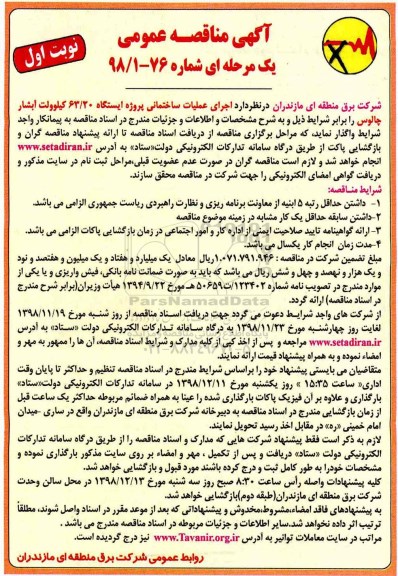 آگهی مناقصه عمومی
یک مرحله ای شماره ۷۶-۹۸/۱
نوبت اول
شرکت برق منطقه ای مازندران درنظردارد اجرای عملیات ساختمانی پروژه ایستگاه ۶۳/۲۰ کیلوولت آبشار
چالوس را برابر شرایط ذیل و به شرح مشخصات و اطلاعات و جزئیات مندرج در اسناد مناقصه به پیمانکار واجد
شرایط واگذار نماید، که مراحل برگزاری مناقصه از دریافت اسناد مناقصه تا ارائه پیشنهاد مناقصه گران و
بازگشایی پاکت از طریق درگاه سامانه تدارکات الکترونیکی دولت«ستاد» به آدرس www.setadiran.ir
انجام خواهد شد و لازم است مناقصه گران در صورت عدم عضویت قبلی،مراحل ثبت نام در سایت مذکور و
دریافت گواهی امضای الکترونیکی را جهت شرکت در مناقصه محقق سازند.
شرایط مناقصه:
۱- داشتن حداقل رتبه ۵ ابنیه از معاونت برنامه ریزی و نظارت راهبردی ریاست جمهوری الزامی می باشد.
۲-داشتن سابقه حداقل یک کار مشابه در زمینه موضوع مناقصه
۳-ارائه گواهینامه تایید صلاحیت ایمنی از اداره کار و امور اجتماعی در زمان بازگشایی پاکات الزامی می باشد.
۴-مدت زمان انجام کار یکسال می باشد.
مبلغ تضمین شرکت در مناقصه : ۱.۰۷۱.۷۹۱.۹۴۶ریال معادل یک میلیارد و هفتاد و یک میلیون و هفتصد و نود
و یک هزار و نهصد و چهل و شش ریال می باشد که باید به صورت ضمانت نامه بانکی، فیش واریزی و یا یکی از
موارد مندرج در تصویب نامه شماره ۱۲۳۴۰۲/ت۵۰۶۵۹هـ مورخ ۱۳۹۴/۹/۲۲ هیأت وزیران(برابر شرح مندرج
در اسناد مناقصه) ارائه گردد.
از شرکت های واجد شرایط دعوت می گردد جهت دریافت اسناد مناقصه از روز شنبه مورخ ۱۳۹۸/۱۱/۱۹
لغایت روز چهارشنبه مورخ ۱۳۹۸/۱۱/۲۳ به درگاه سامانه تدارکات الکترونیکی دولت «ستاد» به آدرس
www.setadiran.ir مراجعه و پس از اخذ کپی از کلیه مدارک و شرایط اسناد مناقصه، آن ها را ممهور به مهر و
امضاء نموده و به همراه پیشنهاد قیمت ارائه نمایند.
متقاضیان می بایستی پیشنهاد خود را براساس شرایط مندرج در اسناد مناقصه تنظیم و حداکثر تا پایان وقت
اداری« ساعت ۱۵:۳۵ » روز یکشنبه مورخ ۱۳۹۸/۱۲/۱۱ در سامانه تدارکات الکترونیکی دولت«ستاد»
بارگذاری و علاوه بر آن فیزیک پاکات بارگذاری شده را عینا به همراه ضمائم مربوطه حداکثر یک ساعت قبل
از زمان بازگشایی مندرج در اسناد مناقصه به دبیرخانه شرکت برق منطقه ای مازندران واقع در ساری -میدان
امام خمینی «ره» در مقابل اخذ رسید تحویل نمایند.
لازم به ذکر است فقط پیشنهاد شرکت هایی که مدارک و اسناد مناقصه را از طریق درگاه سامانه تدارکات
الکترونیکی دولت «ستاد» دریافت و پس از تکمیل ، مهر و امضاء بر روی سایت مذکور بارگذاری نموده و
مشخصات خودرا به طور کامل ثبت و درج کرده باشند مورد قبول و بازگشایی خواهد شد.
کلیه پیشنهادات واصله رأس ساعت ۸:۳۰ صبح روز سه شنبه مورخ ۱۳۹۸/۱۲/۱۳ در محل سالن وحدت
شرکت برق منطقه ای مازندران(طبقه دوم)بازگشایی خواهد شد.
به پیشنهادهای فاقد امضاء،مشروط،مخدوش و پیشنهاداتی که بعد از موعد مقرر در اسناد واصل شوند، مطلقاً
ترتیب اثر داده نخواهد شد.سایر اطلاعات و جزئیات مربوطه در اسناد مناقصه مندرج می باشد.
مراتب در سایت معاملات توانیر به آدرس www.Tavanir.org.ir نیز درج گردیده است.
روابط عمومی شرکت برق منطقه ای مازندران